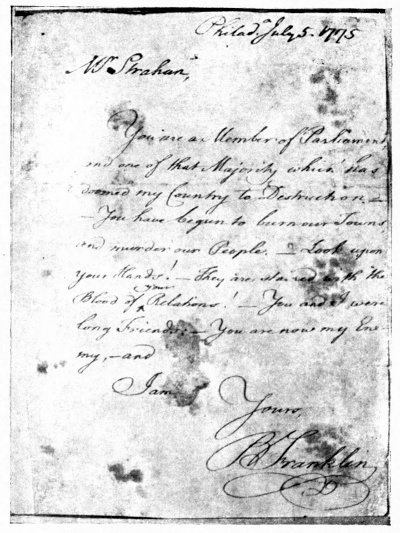 Philada July 5. 1775
Mr Strahan,
You are a Member of Parliament
and one of that Majority which has
doomed my Country to Destruction.—
—You have begun to burn our Towns
and murder our People.— Look upon
your Hands!— They are stained with the
Blood of your Relations!— You and I were
long Friends:— You are now my Ene-
my,— and
I am,
Yours,
B Franklin